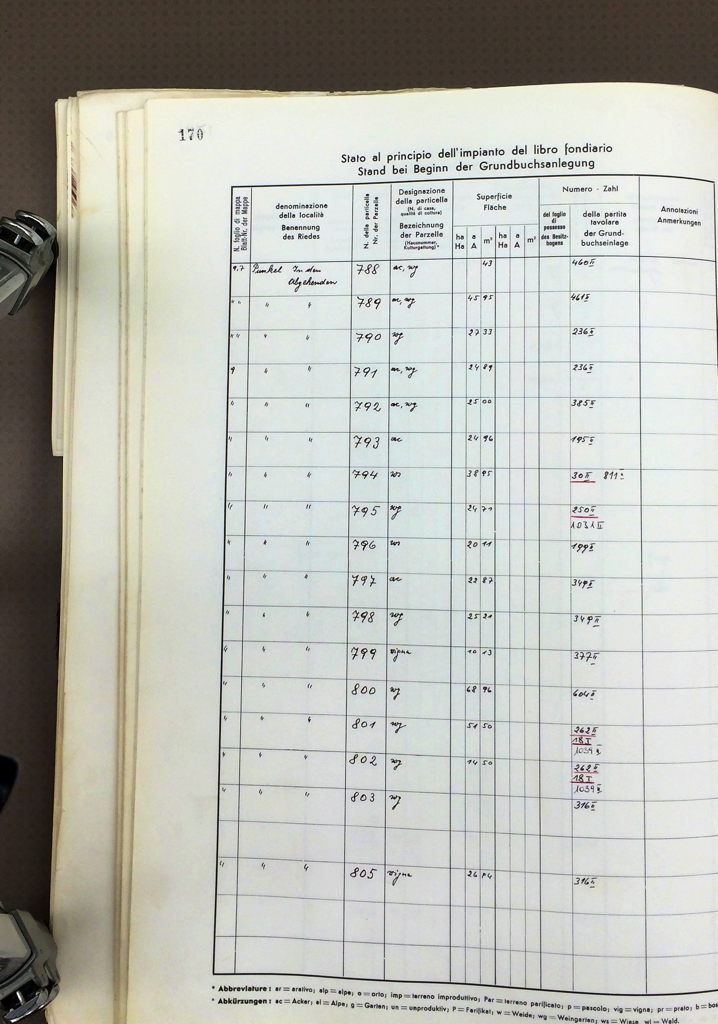 170
Stato al principio dell'impianto del libro fondiario
Stand bei Beginn der Grundbuchsanlegung
N. foglio di mappa
Blatt-Nr. der Mappe
denominazione
della località
Benennung
des Riedes
N. della particella
Nr. der Parzelle
Designazione
della particella
(N. di casa,
qualità di coltura)
Bezeichnung
der Parzelle
(Hausnummer,
Kulturgattung)*
Superficie
Fläche
ha a m² ha a m²
Ha A Ha A
Numero - Zahl
del foglio
di
possesso
des Besitz-
bogens
della partita
tavolare
der Grund-
buchseinlage
Annotazioni
Anmerkungen
9,7 Punkel In den 788 ac, wg 43 460 II
" " " 789 ac, wg 45 95 461 II
" " " 790 wg 27 33 236 II
9 " " 791 ac, wg 24 89 236 II
" " " 792 ac, wg 25 00 385 II
" " " 793 ac 24 96 195 II
" " " 794 ws 38 95 30 II 811
" " " 795 wg 24 71 250 II
1031 II
" " " 796 ws 20 11 199 II
" " " 797 ac 22 87 349 II
" " " 798 wg 25 21 349 II
" " " 799 vigna 10 13 377 II
" " " 800 wg 68 96 604 II
" " " 801 wg 51 50 262 II
18 I
1039 II
" " " 802 wg 14 50 262 II
18 I
1039 II
" " " 803 wg 316 II
" " " 805 vigna 26 316 II
* Abbreviature: ar = arativo; alp = alpe; o = orto; imp = terreno improduttivo; Par = terreno parificato; p = pascolo; vig = vigna; pr = prato; b =
* Abkürzungen: ac = Acker; al = Alpe; g = Garten; un = unproduktiv; P = Parifikat; w = Weide; wg = Weingarten; ws = Wiese wl = Wald.